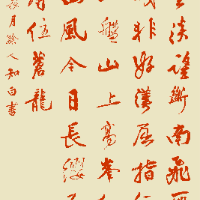 淡望斷南飛
非好漢屈指行
盤山上高峰
風今日長纓
住蒼龍
月人知白書